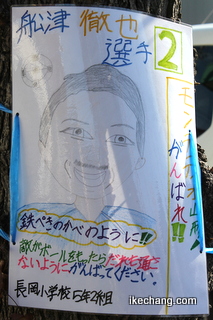 船津 徹也
選手
2
モンテディオ山形
がんばれ!!
鉄ぺきのかべのように!!
敵がボールをもったらだれも通さ
ないようにがんばってください。
長岡小学校 5年2組
ikechang.com